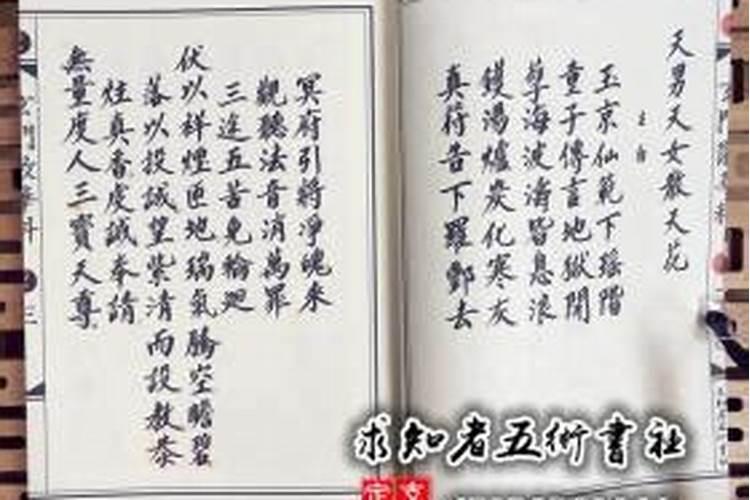 天男天女散天花
玉京仙範下瑤階
童子傳言地獄開
孽海波濤皆息浪
鑊湯爐炭化寒灰
真符告下羅酆去
冥府引將淨魄來
觀聽法音消萬罪
三途五苦免輪廻
伏以祥煙匝地瑞氣騰空瞻碧
落以投誠望紫清而設教恭
炷真香虔誠奉請
無量度人三寶天尊
求知者五術書社